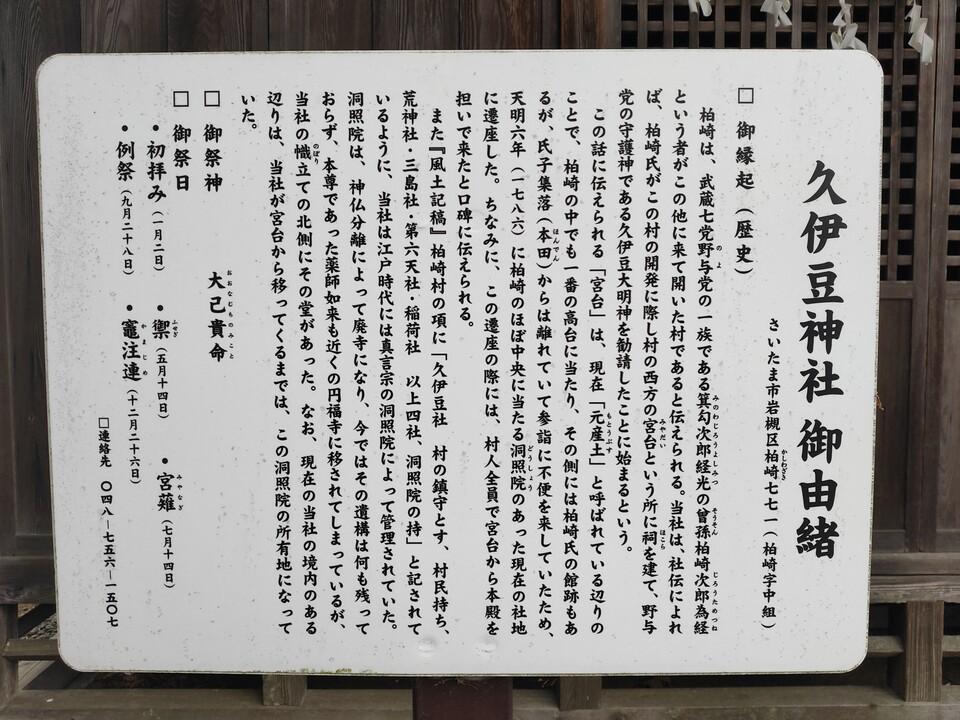 久伊豆神社 御由緒
さいたま市岩槻区柏崎七七一（柏崎字中組）
□ 御縁起（歴史）
柏崎は、武蔵七党野与党の一族である箕勾次郎経光の曾孫柏崎次郎為経
という者がこの他に来て開いた村であると伝えられる。当社は、社伝によれ
ば、柏崎氏がこの村の開発に際し村の西方の宮台という所に祠を建て、野与
党の守護神である久伊豆大明神を勧請したことに始まるという。
この話に伝えられる「宮台」は、現在「元産土」と呼ばれている辺りの
ことで、柏崎の中でも一番の高台に当たり、その側には柏崎氏の館跡もあ
るが、氏子集落（本田）からは離れていて参詣に不便を来していたため、
天明六年（一七八六）に柏崎のほぼ中央に当たる洞照院のあった現在の社地
に遷座した。ちなみに、この遷座の際には、村人全員で宮台から本殿を
担いで来たと口碑に伝えられる。
また『風土記稿』柏崎村の項に「久伊豆社 村の鎮守とす、村民持ち、
荒神社・三島社・第六天社・稲荷社 以上四社、洞照院の持」と記されて
いるように、当社は江戸時代には真言宗の洞照院によって管理されていた。
洞照院は、神仏分離によって廃寺になり、今ではその遺構は何も残って
おらず、本尊であった薬師如来も近くの円福寺に移されてしまっているが、
当社の幟立ての北側にその堂があった。なお、現在の当社の境内のある
辺りは、当社が宮台から移ってくるまでは、この洞照院の所有地になって
いた。
□ 御祭神 大己貴命
□ 御祭日
・初拝み（一月二日） ・禦（五月十四日） ・宮薙（七月十四日）
・例祭（九月二十八日） ・竈注連（十二月二十六日）
□連絡先 〇四八－七五六－一五〇七